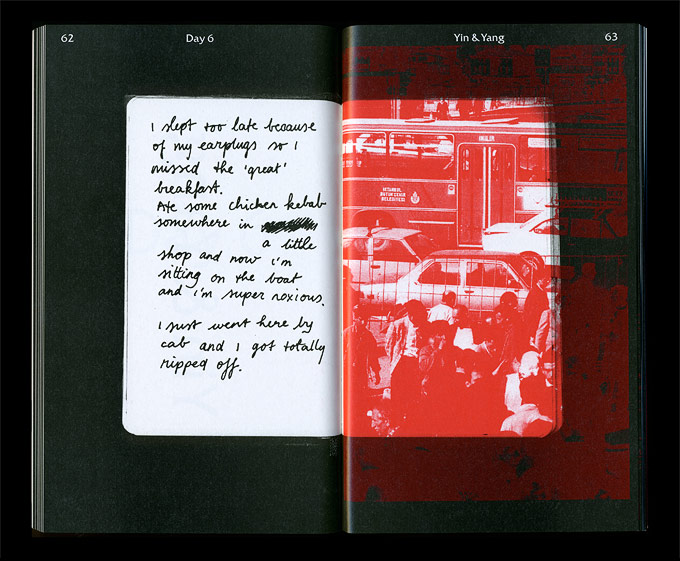 62
Day 6
Yin & Yang
63
I slept too late because
of my earplugs so I
missed the 'great'
breakfast.
Ate some chicken kebab
somewhere in
a little
shop and now i'm
sitting on the boat
and i'm super noxious.
I just went here by
cab and I got totally
ripped off.
İSTANBUL
BÜYÜK ŞEHİR
BELEDİYESİ